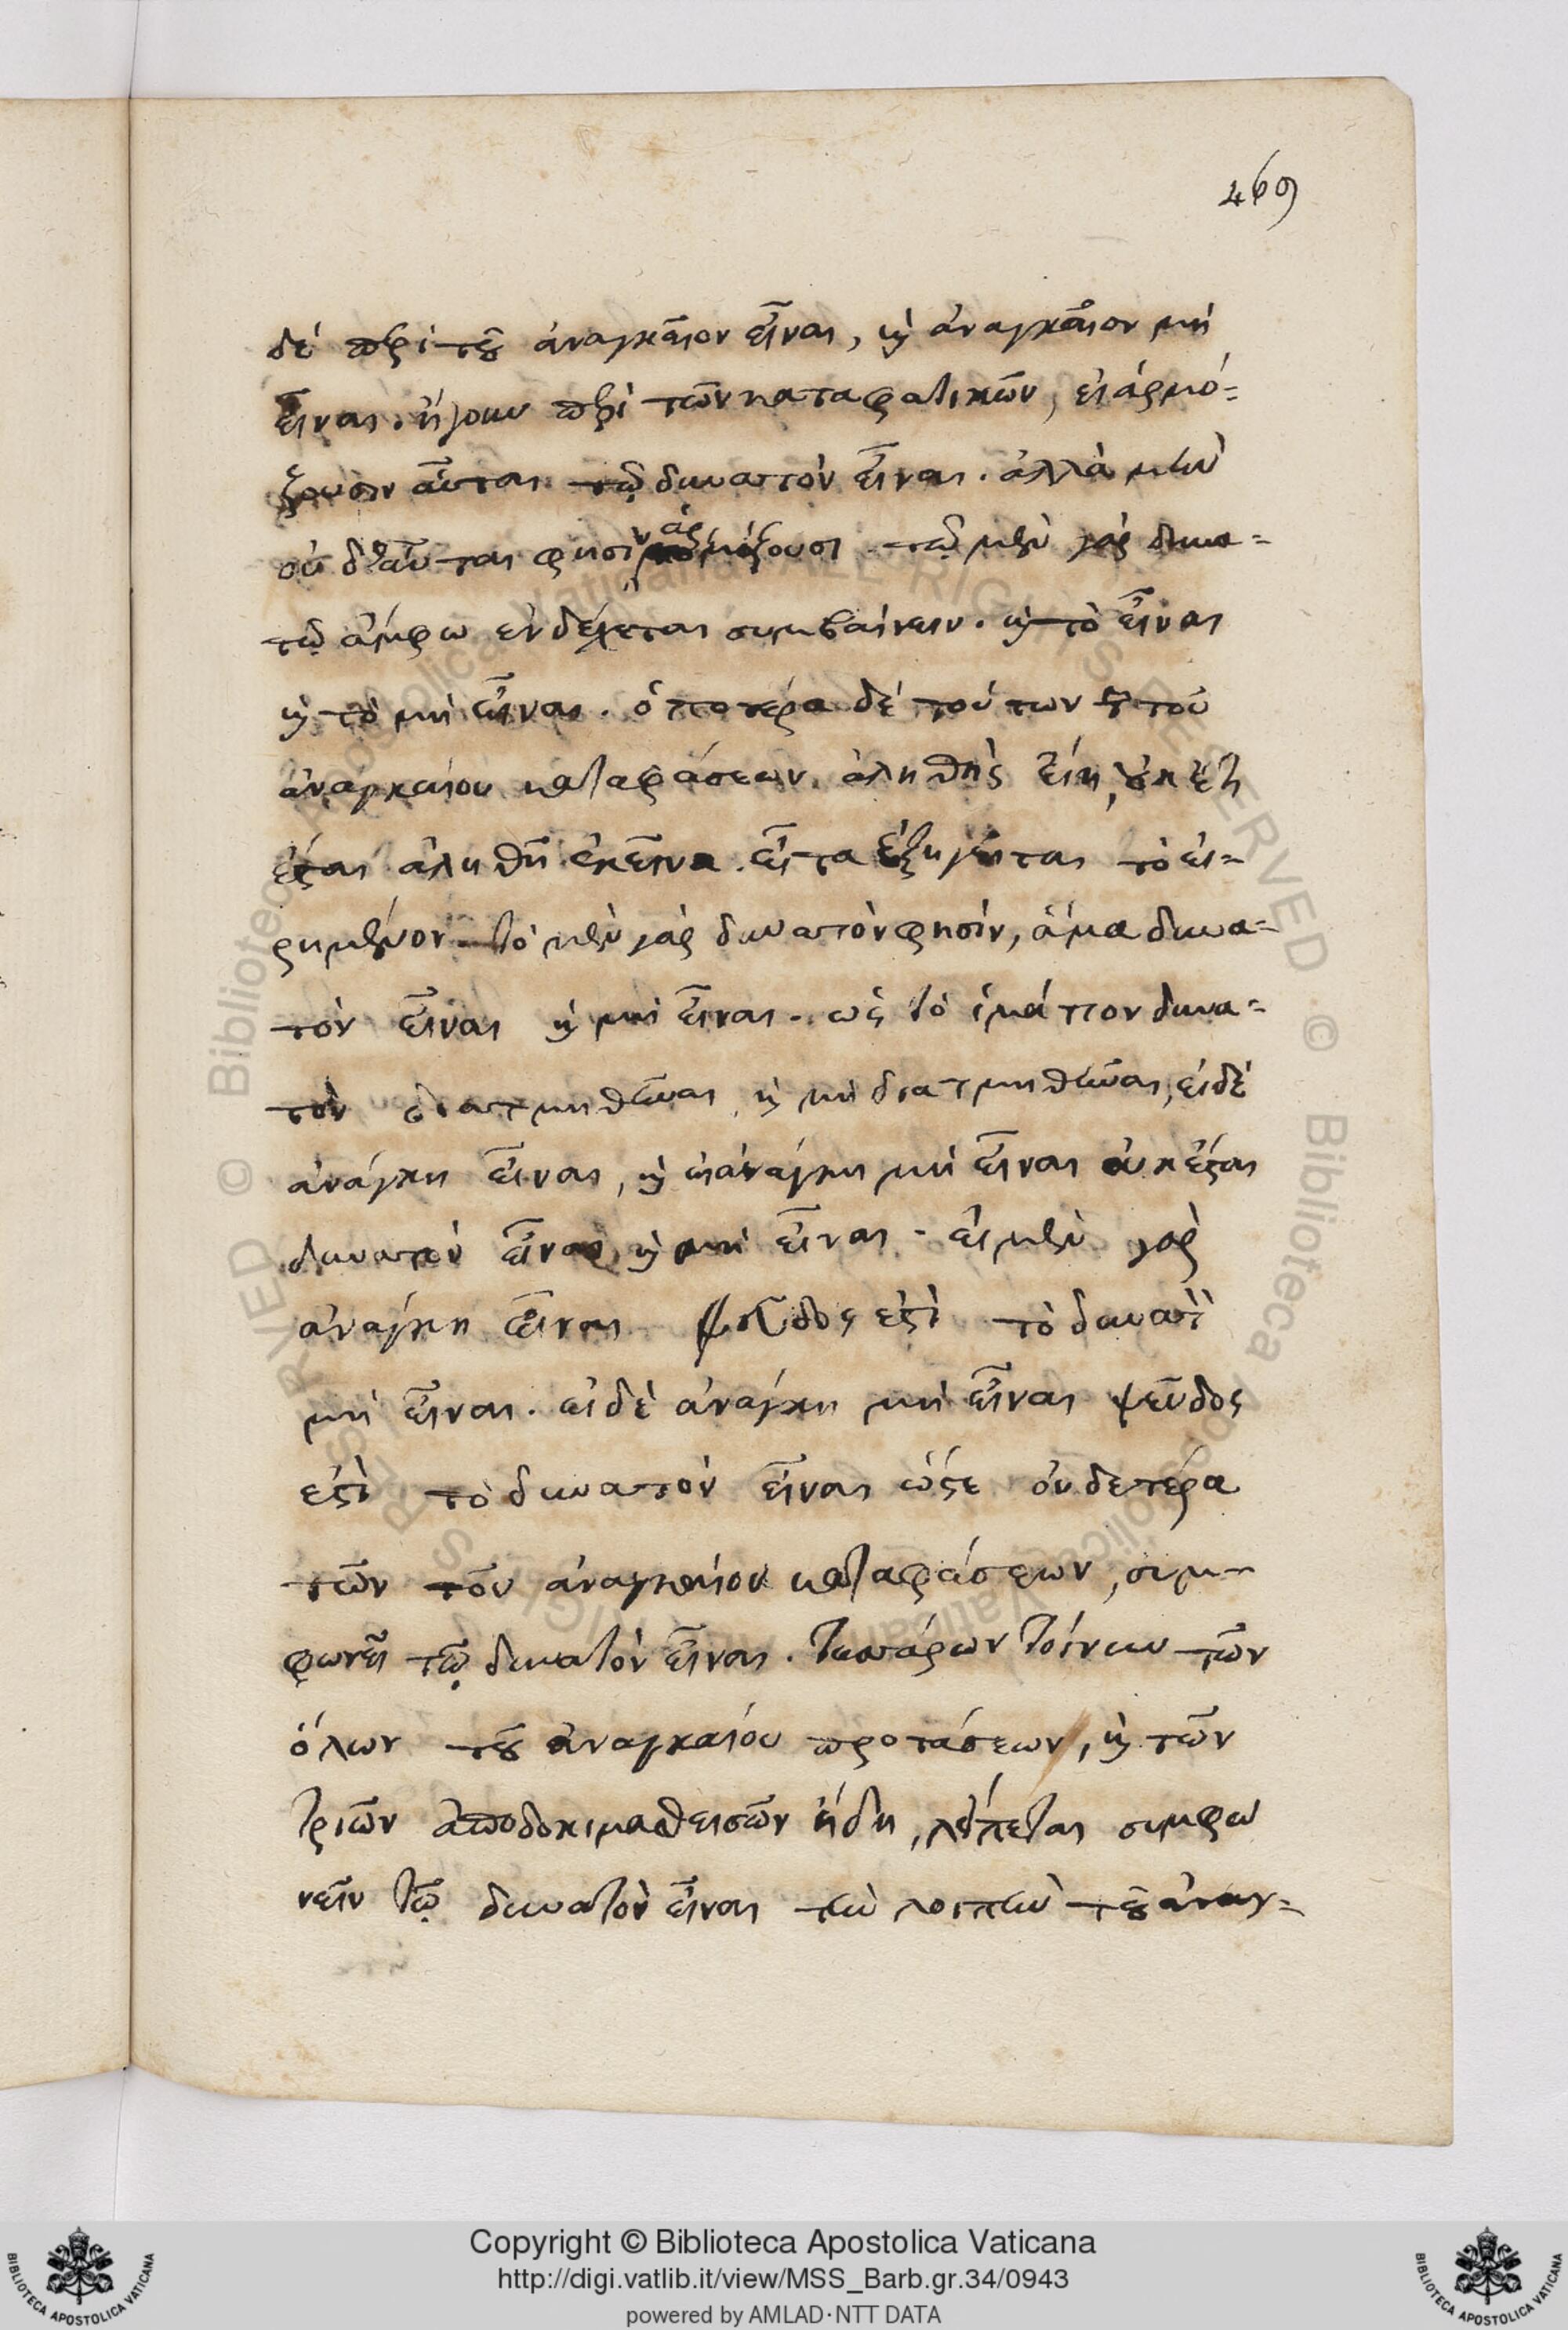 469
δὲ περὶ τοῦ ἀναγκαῖον εἶναι, καὶ ἀναγκαῖον μὴ
εἶναι. ἤγουν περὶ τῶν καταφατικῶν, εἰ ἁρμό-
ζουσιν αὗται τῷ δυνατὸν εἶναι. ἀλλὰ μὴν
οὐδ' αὗται φησὶν ἁρμόζουσι τῷ μὲν γὰρ δυνα-
τῷ ἄμφω ἐνδέχεται συμβαίνειν. καὶ τὸ εἶναι
καὶ τὸ μὴ εἶναι. ὁποτέρα δὲ τούτων τοῦ
ἀναγκαίου καταφάσεων ἀληθὴς εἴη, οὐκ ἔτι
ἔσται ἀληθῆ ἐκεῖνα. εἶτα ἐξηγεῖται τὸ εἰ-
ρημένον. τὸ μὲν γὰρ δυνατὸν φησὶν, ἅμα δυνα-
τὸν εἶναι καὶ μὴ εἶναι. ὡς τὸ ἱμάτιον δυνα-
τὸν διατμηθῆναι, καὶ μὴ διατμηθῆναι, εἰ δὲ
ἀνάγκη εἶναι, καὶ εἰ ἀνάγκη μὴ εἶναι οὐκ ἔσται
δυνατὸν εἶναι καὶ μὴ εἶναι. εἰ μὲν γὰρ
ἀνάγκη εἶναι ψεῦδος ἐστὶ τὸ δυνατὸν
μὴ εἶναι. εἰ δὲ ἀνάγκη μὴ εἶναι ψεῦδος
ἐστὶ τὸ δυνατὸν εἶναι ὥστε οὐδετέρα
τῶν τοῦ ἀναγκαίου καταφάσεων, συμ-
φωνεῖ τῷ δυνατὸν εἶναι. τεσσάρων τοίνυν τῶν
ὅλων τοῦ ἀναγκαίου προτάσεων, καὶ τῶν
τριῶν ἀποδοκιμασθεισῶν ἤδη, λείπεται συμφω
νεῖν τῷ δυνατὸν εἶναι τὴν λοιπὴν τοῦ ἀναγ-
Copyright © Biblioteca Apostolica Vaticana
http://digi.vatlib.it/view/MSS_Barb.gr.34/0943
powered by AMLAD·NTT DATA